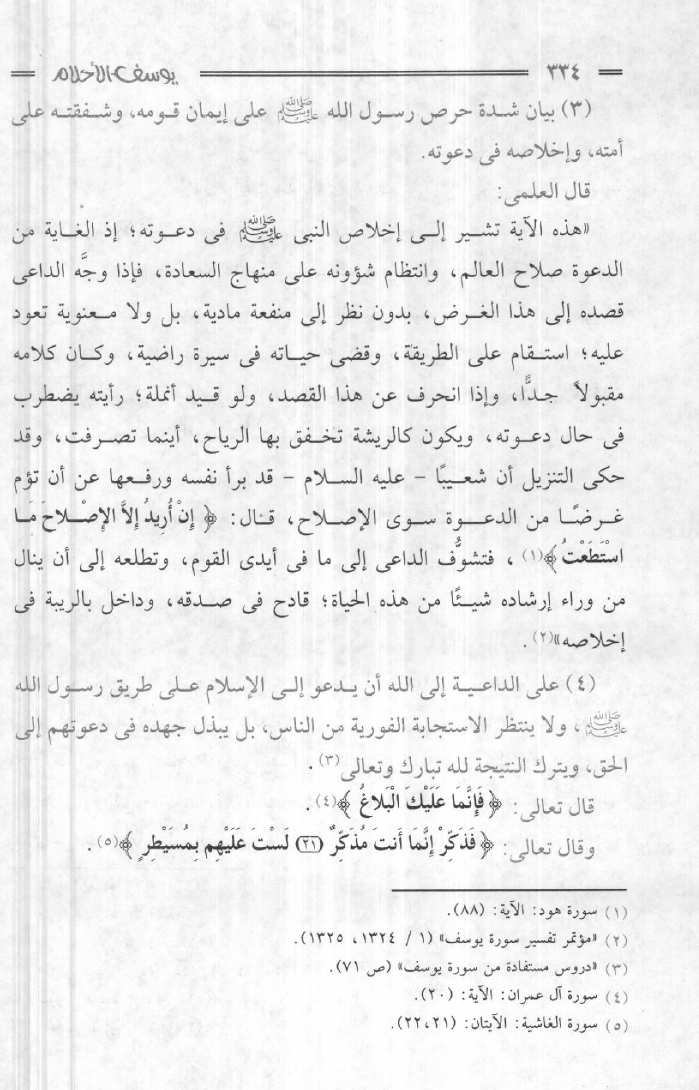 ٣٣٤ يوسف الأحلام
(٣) بيان شدة حرص رسول الله ﷺ على إيمان قومه، وشفقته على
أمته، وإخلاصه فى دعوته.
قال العلمى:
«هذه الآية تشير إلى إخلاص النبى ﷺ فى دعوته؛ إذ الغاية من
الدعوة صلاح العالم، وانتظام شؤونه على منهاج السعادة، فإذا وجَّه الداعى
قصده إلى هذا الغرض، بدون نظر إلى منفعة مادية، بل ولا معنوية تعود
عليه؛ استقام على الطريقة، وقضى حياته فى سيرة راضية، وكان كلامه
مقبولاً جدًّا، وإذا انحرف عن هذا القصد، ولو قيد أنملة؛ رأيته يضطرب
فى حال دعوته، ويكون كالريشة تخفق بها الرياح، أينما تصرفت، وقد
حكى التنزيل أن شعيبًا - عليه السلام - قد برأ نفسه ورفعها عن أن تؤم
غرضًا من الدعوة سوى الإصلاح، قال: ﴿ إِنْ أُرِيدُ إِلاَّ الإِصْلاحَ مَا
اسْتَطَعْتُ ﴾(١) ، فتشوُّف الداعى إلى ما فى أيدى القوم، وتطلعه إلى أن ينال
من وراء إرشاده شيئًا من هذه الحياة؛ قادح فى صدقه، وداخل بالريبة فى
إخلاصه»(٢) .
(٤) على الداعية إلى الله أن يدعو إلى الإسلام على طريق رسول الله
ﷺ، ولا ينتظر الاستجابة الفورية من الناس، بل يبذل جهده فى دعوتهم إلى
الحق، ويترك النتيجة لله تبارك وتعالى(٣) .
قال تعالى: ﴿ فَإِنَّمَا عَلَيْكَ الْبَلاغُ ﴾(٤) .
وقال تعالى: ﴿ فَذَكِّرْ إِنَّمَا أَنتَ مُذَكِّرٌ (٢١) لَسْتَ عَلَيْهِم بِمُسَيْطِرٍ ﴾(٥) .
(١) سورة هود: الآية: (٨٨).
(٢) «مؤتمر تفسير سورة يوسف» (١ / ١٣٢٤، ١٣٢٥).
(٣) «دروس مستفادة من سورة يوسف» (ص ٧١).
(٤) سورة آل عمران: الآية: (٢٠).
(٥) سورة الغاشية: الآيتان: (٢١، ٢٢).